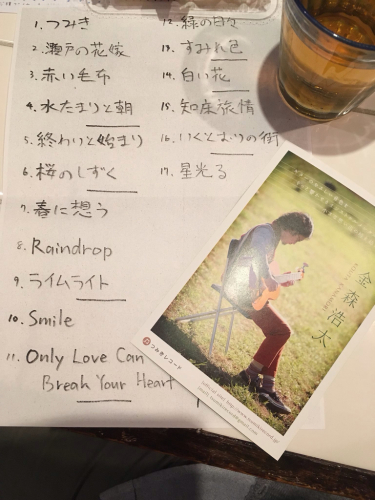 1. つみき
2. 瀬戸の花嫁
3. 赤い毛布
4. 水たまりと朝
5. 終わりと始まり
6. 桜のしずく
7. 春に想う
8. Raindrop
9. ライムライト
10. Smile
11. Only Love Can
Break Your Heart
12. 緑の日々
13. すみれ色
14. 白い花
15. 知床旅情
16. いくとせりの街
17. 星光る
金森浩太
つみきレコード